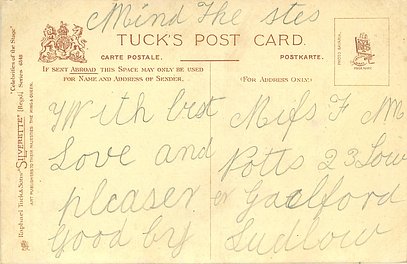 Mind The stes
TUCK'S POST CARD.
CARTE POSTALE.
POSTKARTE.
IF SENT ABROAD THIS SPACE MAY ONLY BE USED
FOR NAME AND ADDRESS OF SENDER.
(FOR ADDRESS ONLY.)
With best
Love and
pleaser
Good by
Miss F M
Potts 23 Low
er Galford
Ludlow
"Celebrities of the Stage"
Raphael Tuck & Sons' "SILVERETTE"
ART PUBLISHERS TO THEIR MAJESTIES THE KING & QUEEN.